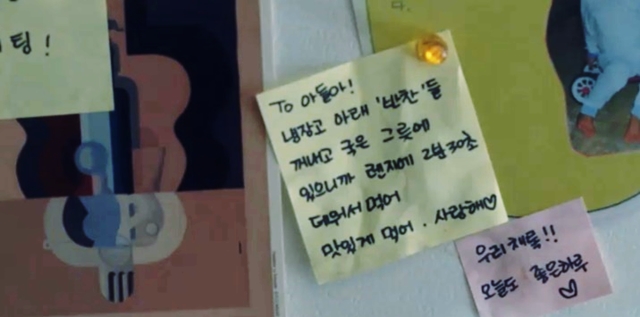 팅!
다.
To 아들아!
냉장고 아래 '반찬'들
꺼내고 국은 그릇에
있으니까 렌지에 2분 30초
데워서 먹어
맛있게 먹어. 사랑해♡
우리 채륵!!
오늘도 좋은하루
♡